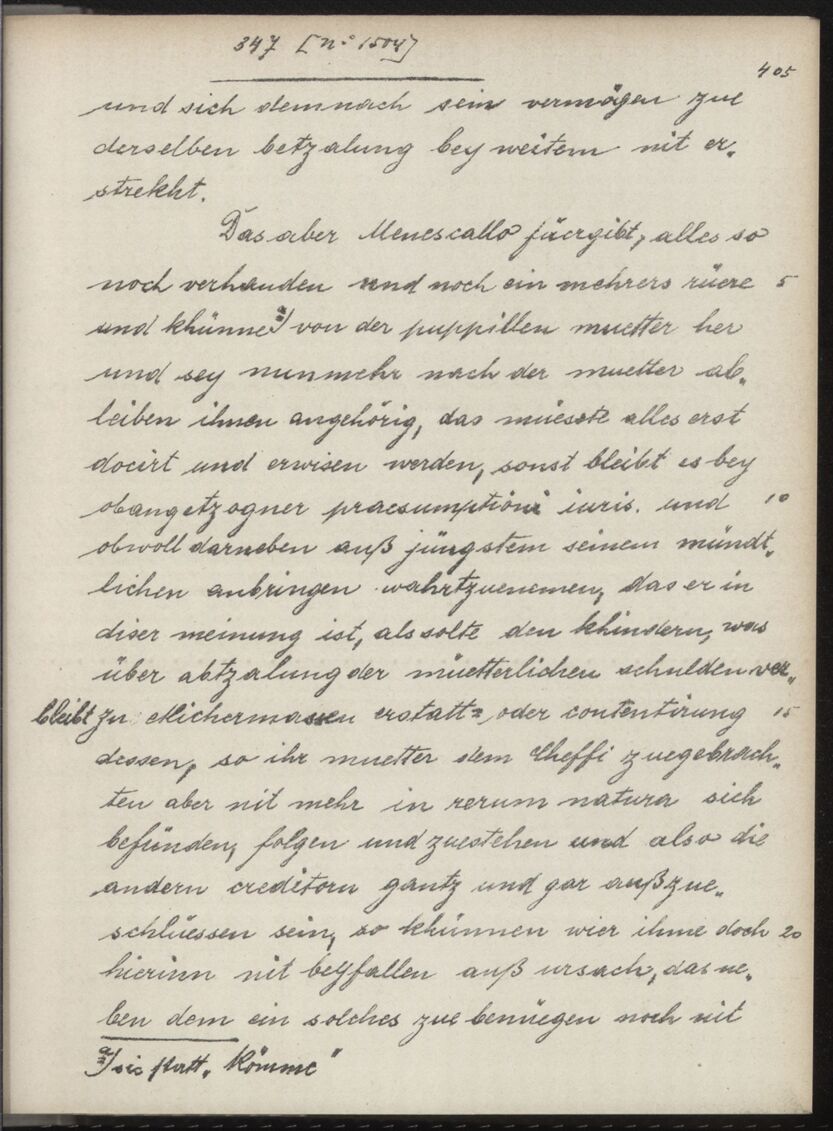 347 [n° 1504]
405
und sich demnach sein vermögen zue
derselben betzalung bey weitem nit er„
strekht.
Das aber Menescallo füergibt, alles so
noch verhanden und noch ein mehrers rüere 5
und khünne a) von der puppillen muetter her
und sey nunmehr nach der muetter ab„
leiben ihnen angehörig, das müesste alles erst
docirt und erwisen werden, sonst bleibt es bey
obangetzogner praesumptioni iuris. und 10
obwoll darneben auß jüngstem seinem mündt„
lichen anbringen wahrtzuenemen, das er in
diser meinung ist, als solte den khindern, was
über abtzalung der müetterlichen schulden ver„
bleibt zu etlichermassen erstatt= oder contentirung 15
dessen, so ihr muetter dem Cheffi zuegebrach„
ten aber nit mehr in rerum natura sich
befünden, folgen und zuestehen und also die
andern creditorn gantz und gar außzue„
schliessen sein, so khünnen wier ihme doch 20
hierinn nit beyfallen auß ursach, das ne„
ben dem ein solches zue benüegen noch nit
a) sic statt „kömme"